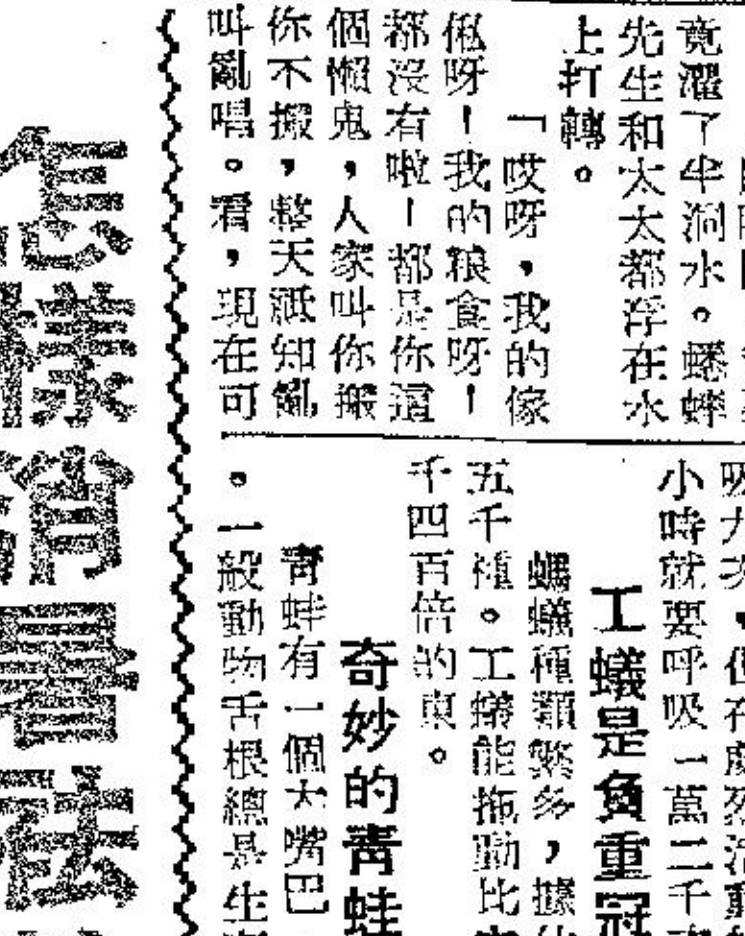 竟濯了半洞水。蟋蟀
先生和太太都浮在水
上打轉。
「哎呀，我的傢
俬呀！我的粮食呀！
都沒有啦！都是你這
個懶鬼，人家叫你搬
你不搬，整天祇知亂
叫亂唱。看，現在可
小時就要呼吸一萬二千
工蟻是負重冠
螞蟻種類繁多，據
五千種。工蟻能拖動比
千四百倍的東。
奇妙的青蛙
青蛙有一個大嘴巴
。一般動物舌根總是生
怎樣消暑法